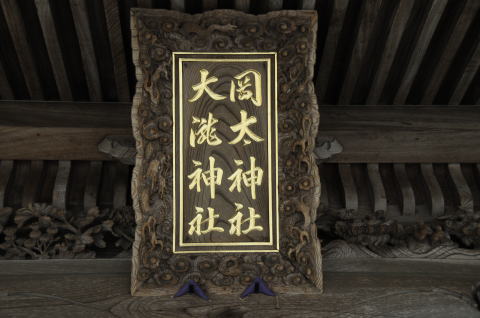 岡太神社
大瀧神社